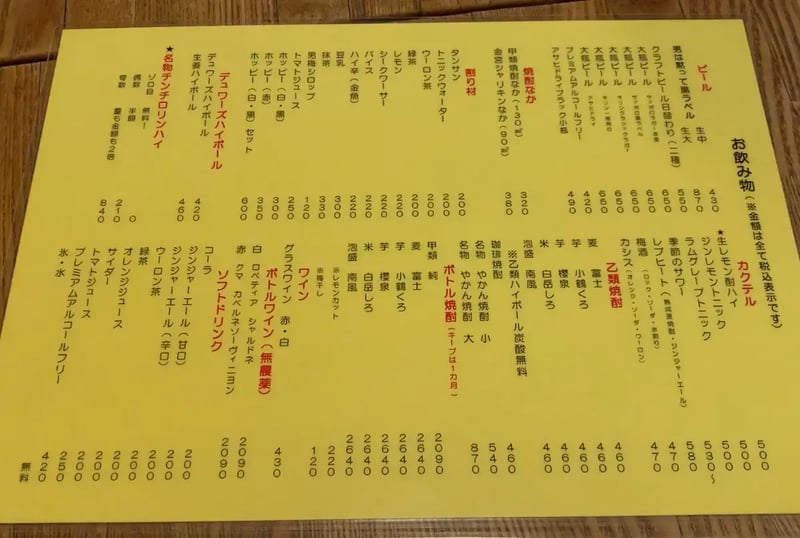 お飲み物(※金額は全て税込表示です)
ビール
男は黙って黒ラベル 生中 430
生大 870
クラフトビール日替わり(二種) 550
大瓶ビール サッポロラガー赤星 650
大瓶ビール サッポロ黒ラベル 650
大瓶ビール キリンクラシックラガー 650
大瓶ビール キリン一番搾り 650
大瓶ビール アサヒドライ 650
プレミアムアルコールフリー 420
アサヒドライブラック小瓶 490
焼酎なか
甲類焼酎なか(130㎖) 320
金宮シャリキンなか(90㎖) 380
割り材
タンサン 200
トニックウォーター 200
ウーロン茶 200
緑茶 200
レモン 220
シークワーサー 220
バイス 220
ハイ辛(金魚) 220
豆乳 300
抹茶 330
男梅シロップ 130
トマトジュース 250
ホッピー(白・黒) 300
ホッピー(赤) 350
ホッピー(白・黒)セット 600
デュワーズハイボール
デュワーズハイボール 420
生姜ハイボール 460
★名物チンチロリンハイ
ゾロ目 無料! 0
偶数 半額 210
奇数 量も金額も2倍 840
カクテル
★生レモン酎ハイ 500
ジンレモントニック 500
ラムグレープトニック 500
季節のサワー 530〜
レプヒート(熟成麦焼酎・ジンジャーエール) 580
梅酒(ロック・ソーダ・水割り) 470
カシス(オレンジ・ソーダ・ウーロン) 470
乙類焼酎
麦 富士 460
芋 小鶴くろ 460
芋 櫻泉 460
米 白岳しろ 460
泡盛 南風 460
※乙類ハイボール炭酸無料
珈琲焼酎 460
名物 やかん焼酎 小 540
名物 やかん焼酎 大 870
ボトル焼酎(キープは1カ月)
甲類 純 2090
麦 富士 2640
芋 小鶴くろ 2640
芋 櫻泉 2640
米 白岳しろ 2640
泡盛 南風 2640
※レモンカット 220
※梅干し 120
ワイン
グラスワイン 赤・白 430
ボトルワイン(無農薬)
白 ロペティア シャルドネ 2090
赤 クマ カベルネソーヴィニヨン 2090
ソフトドリンク
コーラ 200
ジンジャーエール(甘口) 200
ジンジャーエール(辛口) 200
ウーロン茶 200
緑茶 200
オレンジジュース 200
サイダー 200
トマトジュース 250
プレミアムアルコールフリー 420
氷・水 無料